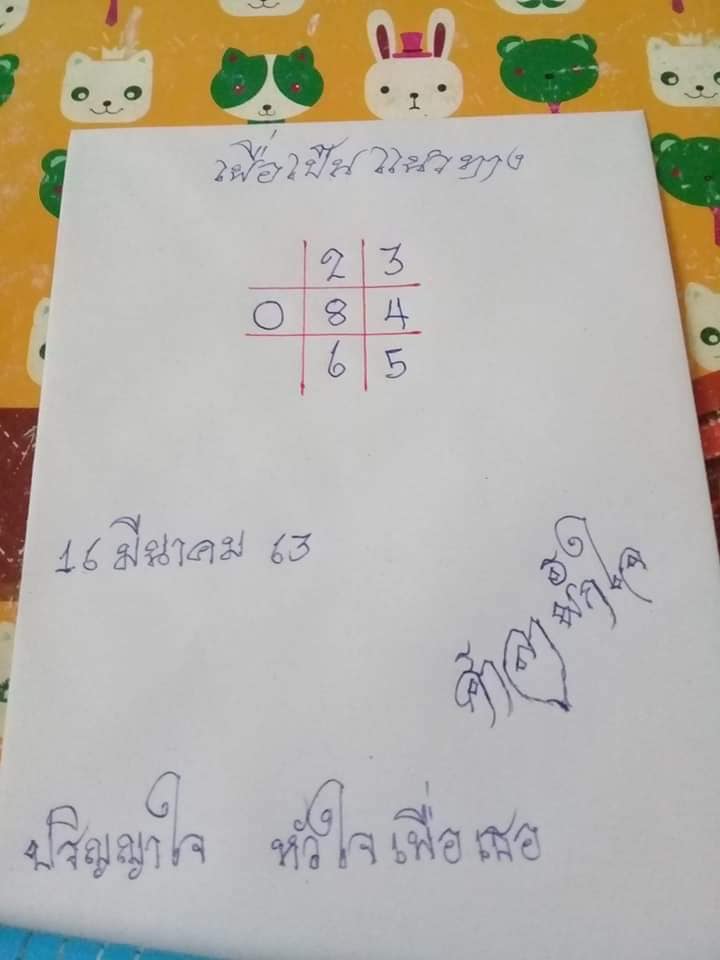 เพื่อเป็นแนวทาง
2 3
0 8 4
6 5
16 มีนาคม 63
ปริญญาใจ หัวใจเพื่อเธอ